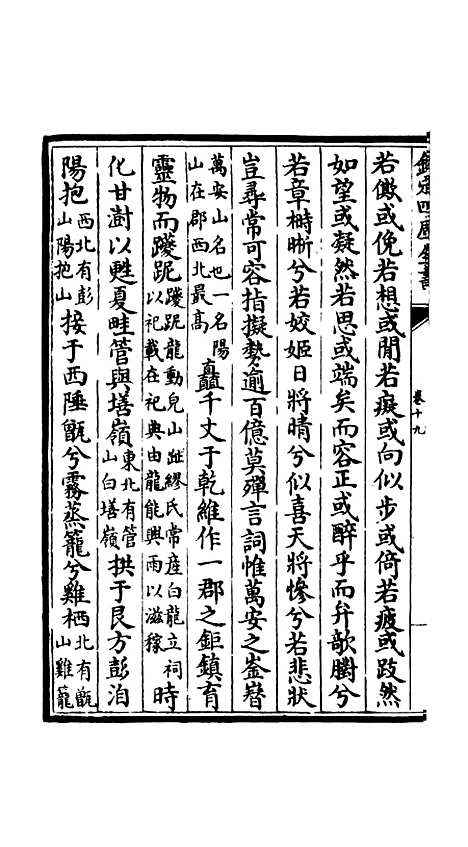 欽定四庫全書
卷十九
若儆或俛若想或閒若癡或向似步或倚若疲或跂然
如望或凝然若思或端矣而容正或醉乎而弁欹㔶兮
若章榯晰兮若姣姬日將晴兮似喜天將慘兮若悲狀
豈尋常可容指擬勢逾百億莫殫言詞惟萬安之崟嶜
萬安山名也一名陽山在郡西北最高矗千丈于乾維作一郡之鉅鎮育
靈物而躨跜躨跜龍動皃山趾繆氏常産白龍立祠以祀載在祀典由龍能興雨以滋稼時
化甘澍以甦夏畦管與墡嶺東北有管山白墡嶺拱于艮方彭泊
陽抱西北有彭山陽抱山接于西陲甑兮霧蒸籠兮雞栖北有甑山雞籠